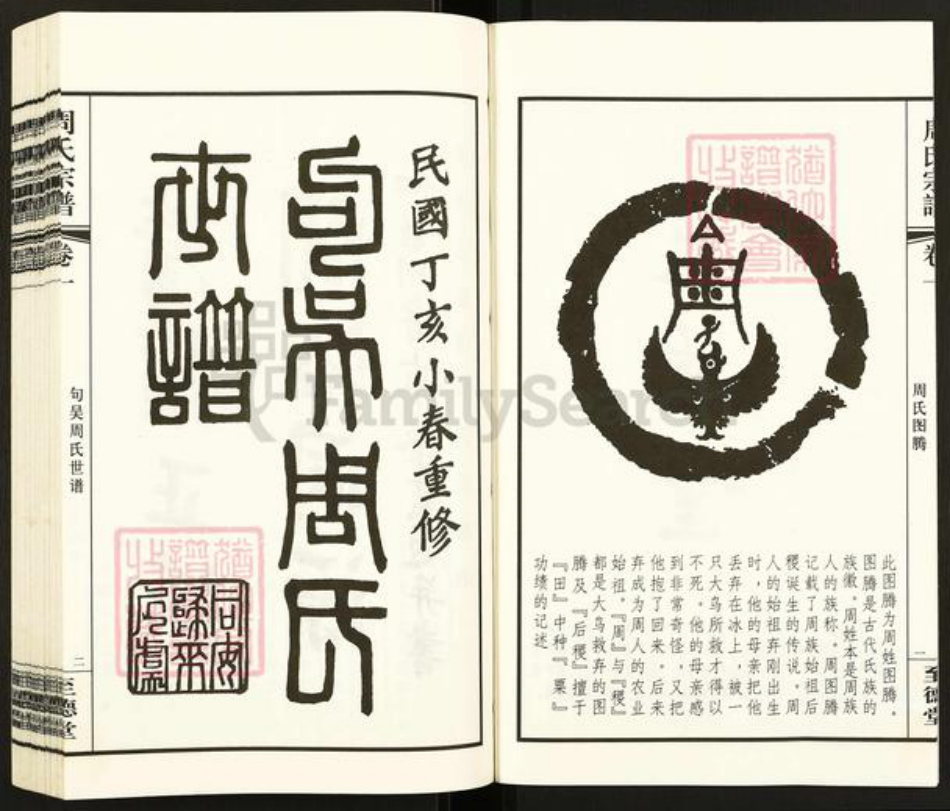 周氏宗譜
卷一
周氏图腾
一
至德堂
此图腾为周姓图腾。
图腾是古代氏族的
族徽。周姓本是周族
人的族称。周图腾
记载了周族始祖后
稷诞生的传说。周
人的始祖弃刚出生
时，他的母亲把他
丢弃在冰上，被一
只大鸟所救才得以
不死。他的母亲感
到非常奇怪，又把
他抱了回来。后来
弃成为周人的农业
始祖。『周』与『稷』
都是大鸟救弃的图
腾及『后稷』擅于
『田』中种『粟』
功绩的记述
民國丁亥小春重修
句吴周氏
世譜
周氏宗譜
卷一
句吴周氏世谱
二
至德堂
FamilySearch